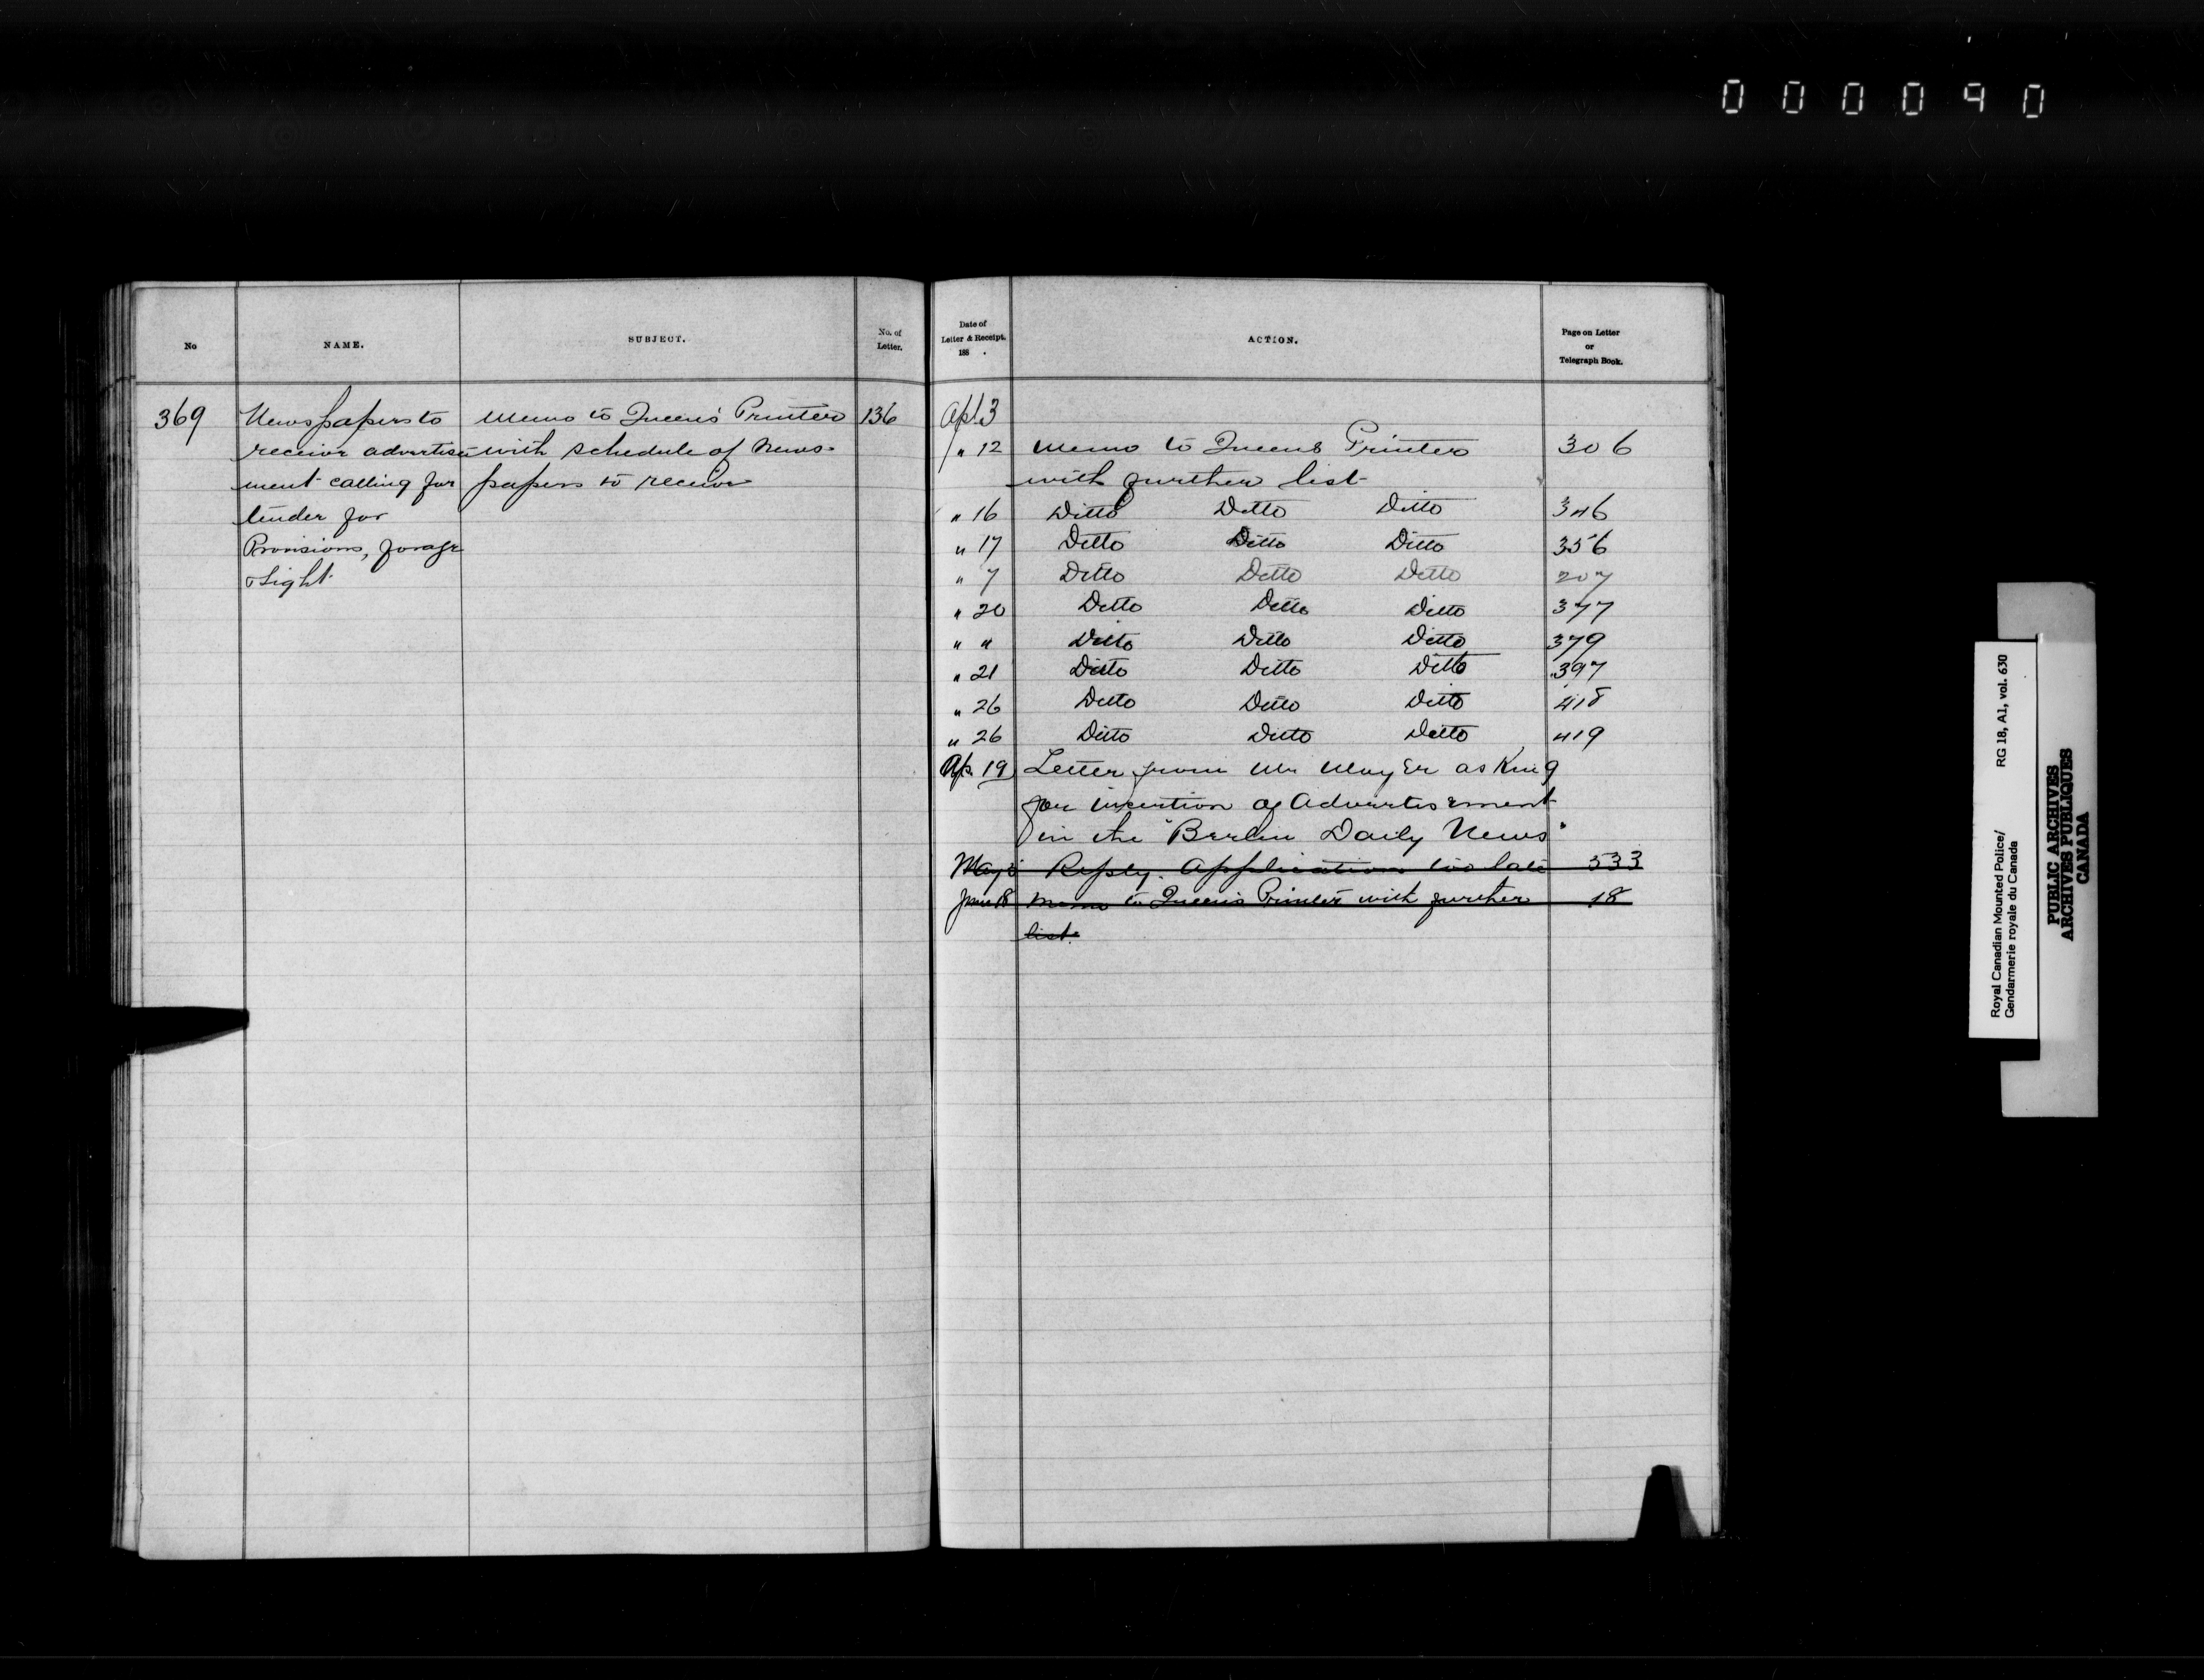 000090
No
NAME.
SUBJECT.
No. of
Letter.
Date of
Letter & Receipt.
188 .
ACTION.
Page on Letter
or
Telegraph Book.
369
Newspapers to
receive advertise-
ment calling for
tender for
Provisions, forage
& Light
Memo to Queen's Printer
with schedule of News-
papers to receive
136
Apl 3
" 12 Memo to Queens Printer 306
with further list
" 16 Ditto Ditto Ditto 346
" 17 Ditto Ditto Ditto 356
" 7 Ditto Ditto Ditto 207
" 20 Ditto Ditto Ditto 377
" " Ditto Ditto Ditto 379
" 21 Ditto Ditto Ditto 397
" 26 Ditto Ditto Ditto 418
" 26 Ditto Ditto Ditto 419
Ap. 19 Letter from Mr Mayer asking
for insertion of Advertisement
in the "Berlin Daily News"
May Reply. Application too late 533
June 18 Memo to Queen's Printer with further 18
list.
Royal Canadian Mounted Police/ RG 18, A1, vol. 630
Gendarmerie royale du Canada
PUBLIC ARCHIVES
ARCHIVES PUBLIQUES
CANADA